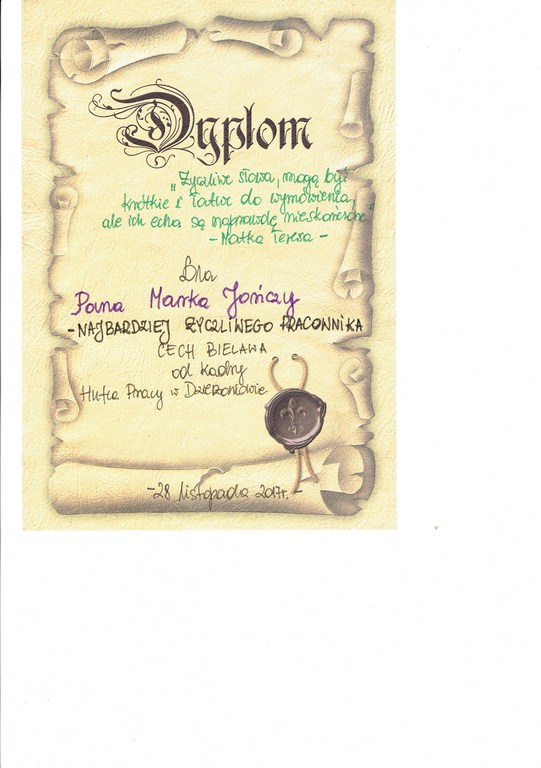 Dyplom
„Życzliwe słowa, mogą być
krótkie i łatwe do wymówienia,
ale ich echa są naprawdę nieskończone"
- Matka Teresa -
Dla
Pana Marka Jończy
- NAJBARDZIEJ ŻYCZLIWEGO PRACOWNIKA
CECH BIELAWA
od kadry
Hufca Pracy w Dzierżoniowie
- 28 listopada 2017r. -